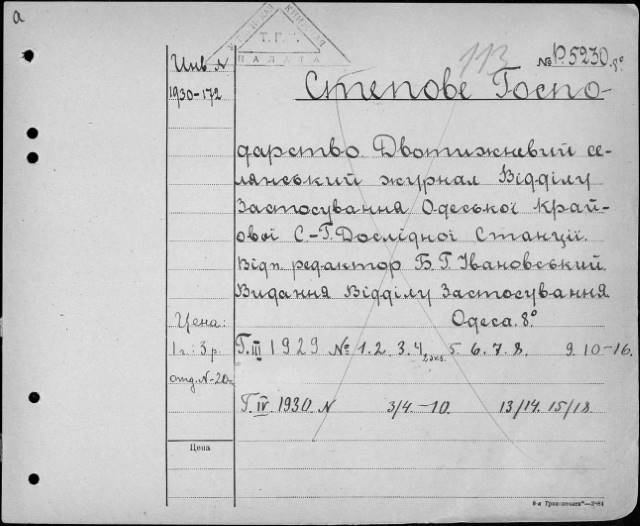 а
КНИЖНАЯ
ПАЛАТА
Т.Г.
113
№ Р.5230. 8º
Инв N
1930-172
Степове Госпо-
дарство Двотижневий се-
лянський журнал Відділу
Застосування Одеської Край-
ової С-Г. Дослідної Станції.
Відп. редактор Б.Г. Івановський.
Видання Відділу Застосування
Одеса. 8º
Цена:
1 г.: 3 р.
отд. N-20к
Г. III 1929 № 1. 2. 3. 4 2 экз. 5. 6. 7. 8. 9. 10-16.
Г. IV 1930. N 3/4-10. 13/14. 15/18.
Цена